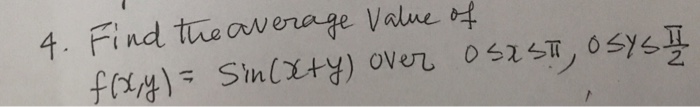 4. Find the average value of
f(x,y) = Sin(x+y) over 0≤x≤π, 0≤y≤π/2